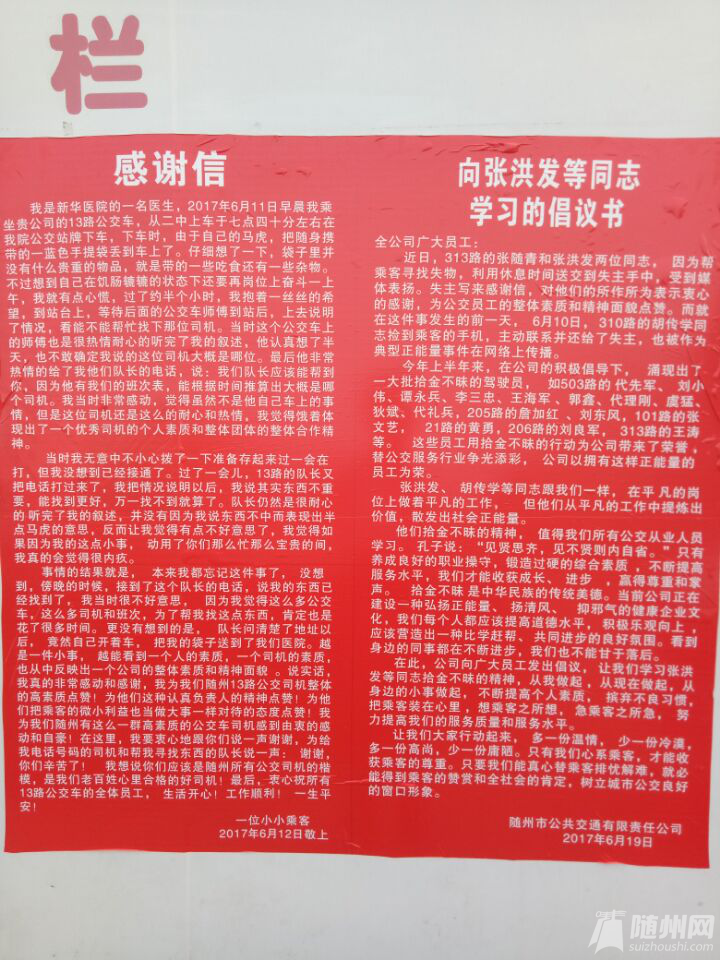 栏
感谢信
我是新华医院的一名医生，2017年6月11日早晨我乘
坐贵公司的13路公交车，从二中上车于七点四十分左右在
我院公交站牌下车，下车时，由于自己的马虎，把随身携
带的一蓝色手提袋丢到车上了。仔细想了一下，袋子里并
没有什么贵重的物品，就是带的一些吃食还有一些杂物。
不过想到自己在饥肠辘辘的状态下还要再岗位上奋斗一上
午，我就有点心慌，过了约半个小时，我抱着一丝丝的希
望，到站台上，等待后面的公交车师傅到站后，上去说明
了情况，看能不能帮忙找下那位司机。当时这个公交车上
的师傅也是很热情耐心的听完了我的叙述，他认真想了半
天，也不敢确定我说的这位司机大概是哪位。最后他非常
热情的给了我他们队长的电话，说：我们队长应该能帮到
你，因为他有我们的班次表，能根据时间推算出大概是哪
个司机。我当时非常感动，觉得虽然不是他自己车上的事
情，但是这位司机还是这么的耐心和热情，我觉得饿着体
现出了一个优秀司机的个人素质和整体团体的整体合作精
神。
当时我无意中不小心拨了一下准备存起来过一会在
打，但我没想到已经接通了。过了一会儿，13路的队长又
把电话打过来了，我把情况说明以后，我说其实东西不重
要，能找到更好，万一找不到就算了。队长仍然是很耐心
的 听完了我的叙述，并没有因为我说东西不中而表现出半
点马虎的意思，反而让我觉得有点不好意思了，我觉得如
果因为我的这点小事， 动用了你们那么忙那么宝贵的间，
我真的会觉得很内疚。
事情的结果就是， 本来我都忘记这件事了， 没想
到，傍晚的时候，接到了这个队长的电话，说我的东西已
经找到了，我当时很不好意思， 因为我觉得这么多公交
车，这么多司机和班次，为了帮我找这点东西，肯定也是
花了很多时间。 更没有想到的是， 队长问清楚了地址以
后， 竟然自己开着车， 把我的袋子送到了我们医院。越
是一件小事， 越能看到一个人的素质，一个司机的素质，
也从中反映出一个公司的整体素质和精神面貌 。说实话，
我真的非常感动和感谢，我为我们随州13路公交司机整体
的高素质点赞！为他们这种认真负责人的精神点赞！为他
们把乘客的微小利益也当做大事一样对待的态度点赞！我
为我们随州有这么一群高素质的公交车司机感到由衷的感
动和自豪！在这里，我要衷心地跟你们说一声谢谢，为给
我电话号码的司机和帮我寻找东西的队长说一声： 谢谢，
你们辛苦了！ 我想说你们应该是随州所有公交司机的楷
模，是我们老百姓心里合格的好司机！最后，衷心祝所有
13路公交车的全体员工， 生活开心！工作顺利！ 一生平
安！
一位小小乘客
2017年6月12日敬上
向张洪发等同志
学习的倡议书
全公司广大员工：
近日，313路的张随青和张洪发两位同志， 因为帮
乘客寻找失物，利用休息时间送交到失主手中，受到媒
体表扬。失主写来感谢信，对他们的所作所为表示衷心
的感谢，为公交员工的整体素质和精神面貌点赞。而就
在这件事发生的前一天， 6月10日， 310路的胡传学同
志捡到乘客的手机，主动联系并还给了失主，也被作为
典型正能量事件在网络上传播。
今年上半年来，在公司的积极倡导下， 涌现出了
一大批拾金不昧的驾驶员， 如503路的 代先军、 刘小
伟、谭永兵、李三忠、王海军 、郭鑫、代理刚、虞猛、
狄斌、代礼兵，205路的詹加红 、刘东风，101路的张
文艺， 21路的黄勇，206路的刘良军， 313路的王涛
等。 这些员工用拾金不昧的行动为公司带来了荣誉 ，
替公交服务行业争光添彩， 公司以拥有这样正能量的
员工为荣。
张洪发、 胡传学等同志跟我们一样，在平 凡的岗
位上做着平凡的工作， 但他们从平凡的工作中提炼出
价值，散发出社会正能量。
他们拾金不昧的精神， 值得我们所有公交从业人员
学习。 孔子说： “见贤思齐，见不贤则内自省。” 只有
养成良好的职业操守，锻造过硬的综合素质 ，不断提高
服务水平，我们才能收获成长、 进步 ，赢得尊重和掌
声。 拾金不昧 是中华民族的传统美德。当前公司正在
建设一种弘扬正能量、 扬清风、 抑邪气的健康企业文
化，我们每个人都应该提高道德水平， 积极乐观向上，
应该营造出一种比学赶帮、 共同进步的良好氛围。看到
身边的同事都在不断进步，我们也不能甘于落后。
在此，公司向广大员工发出倡议， 让我们学习张洪
发等同志拾金不昧的精神，从我做起，从现在做起，从
身边的小事做起，不断提高个人素质， 摈弃不良习惯，
把乘客装在心里 ，想乘客之所想， 急乘客之所急， 努
力提高我们的服务质量和服务水平。
让我们大家行动起来， 多一份温情， 少一份冷漠，
多一份高尚，少一份庸陋。只有我们心系乘客，才能收
获乘客的尊重。只要我们能真心替乘客排忧解难，就必
能得到乘客的赞赏和全社会的肯定，树立城市公交良好
的窗口形象。
随州市公共交通有限责任公司
2017年6月19日
随州网
suizhoushi.com